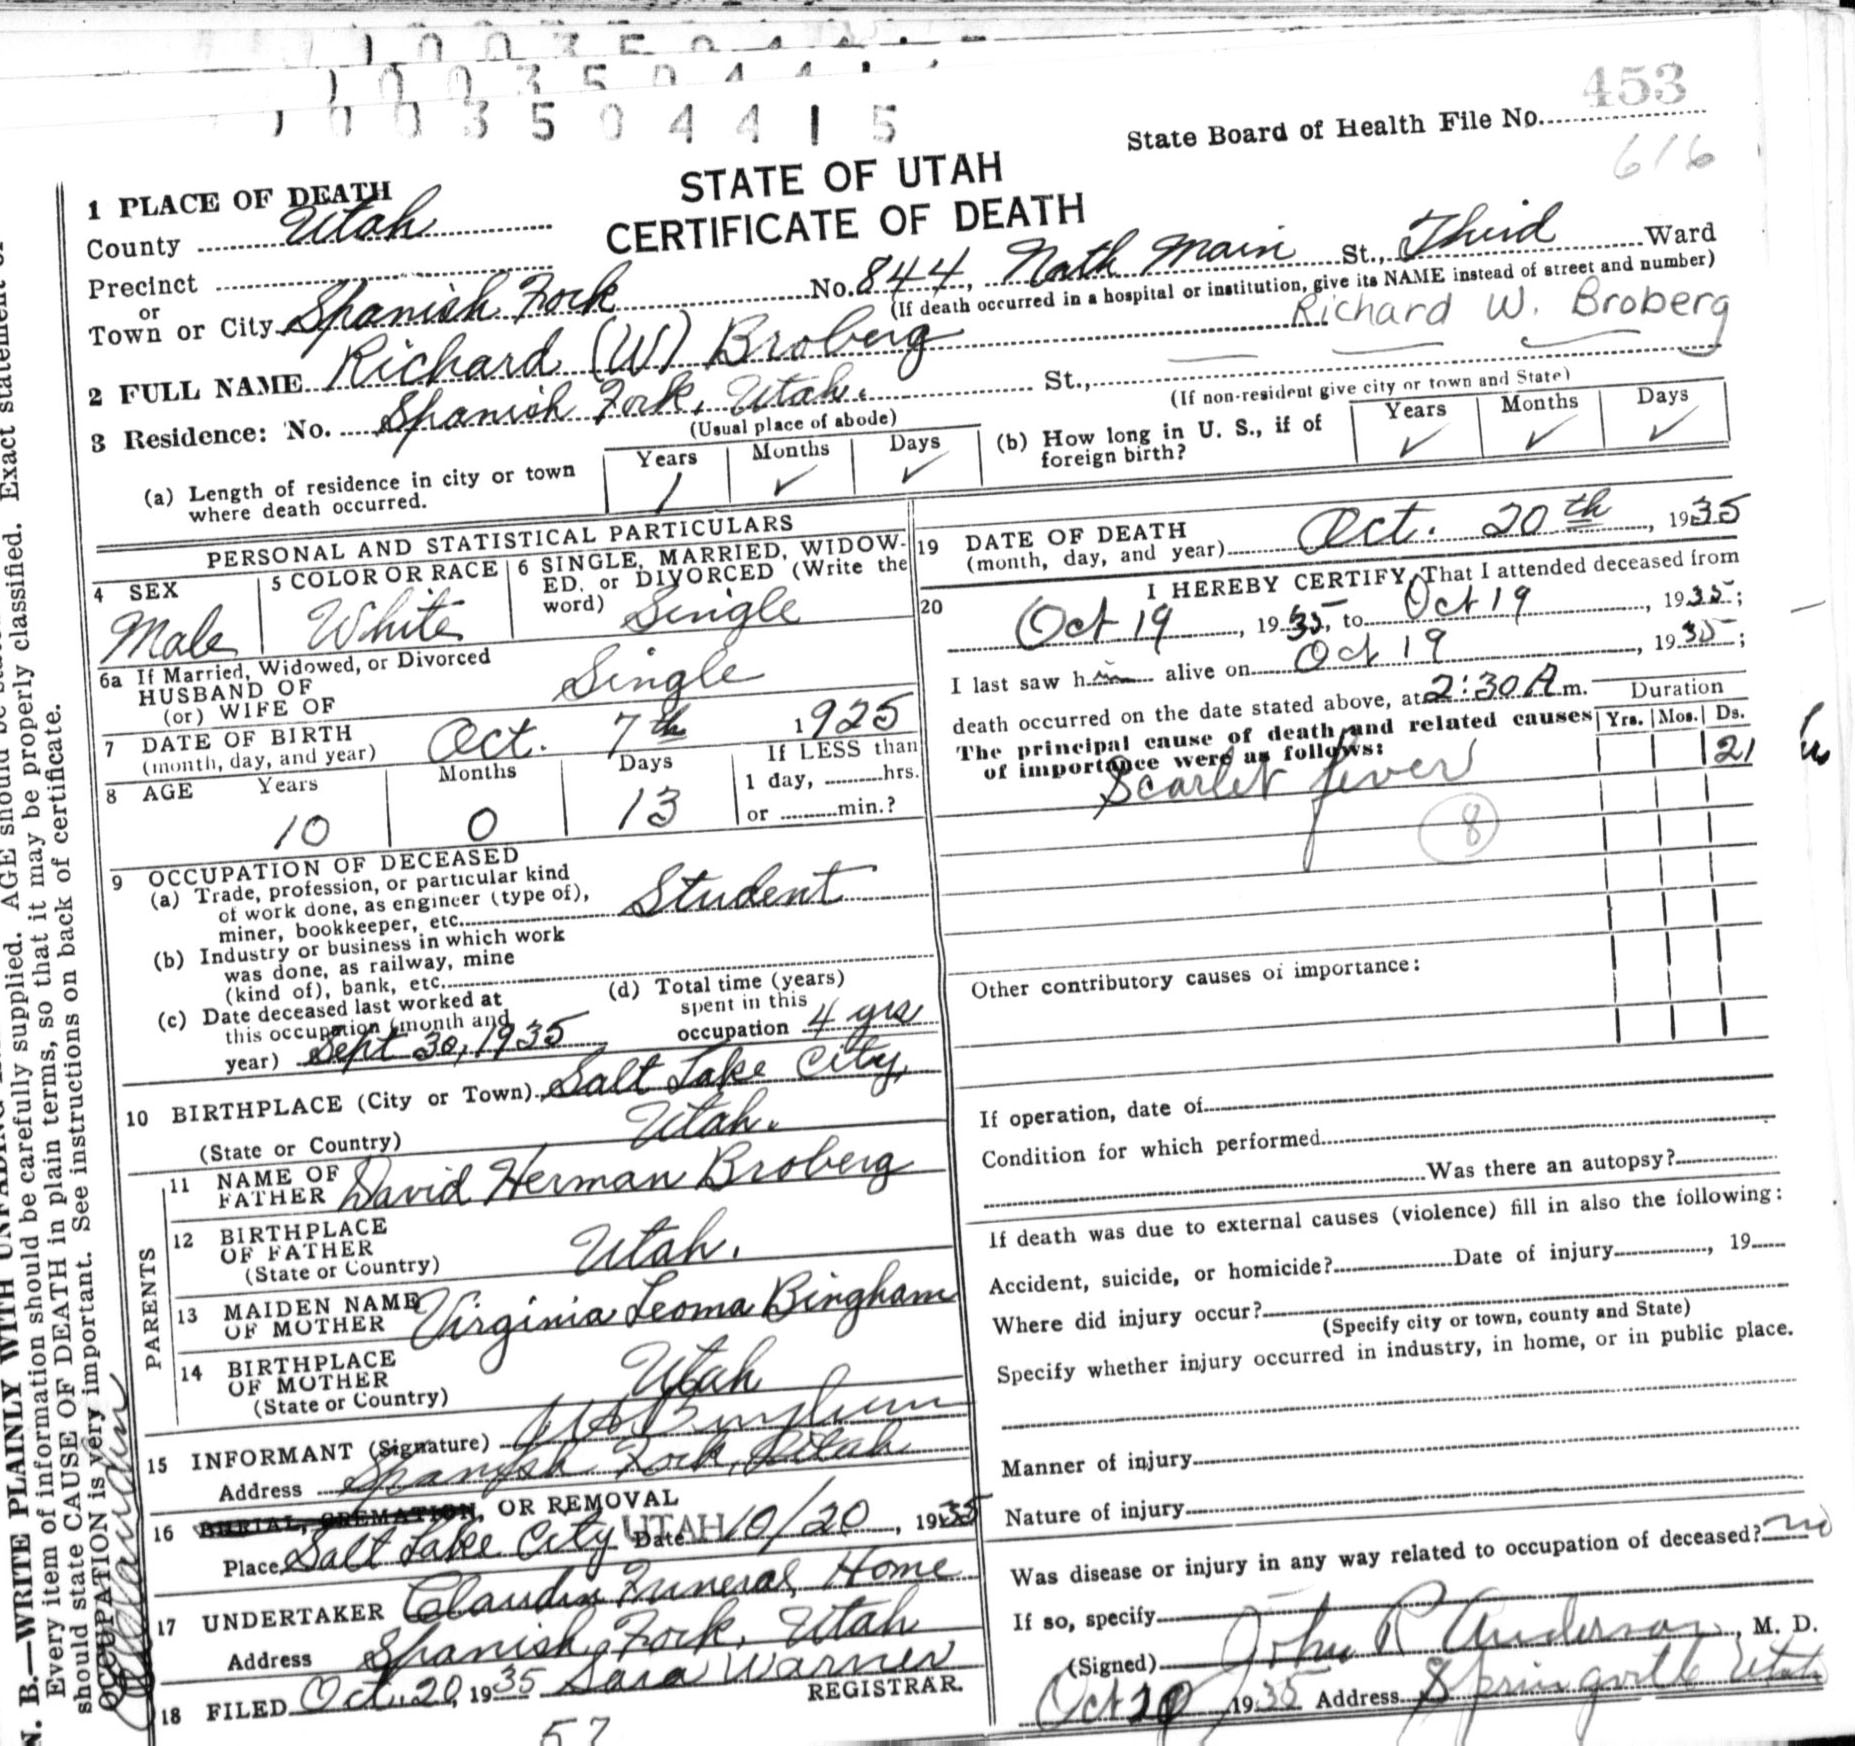 1003504415
453
State Board of Health File No.
616
STATE OF UTAH
CERTIFICATE OF DEATH
1 PLACE OF DEATH
County Utah
Precinct
or
Town or City Spanish Fork No. 844, North Main St., Third Ward
(If death occurred in a hospital or institution, give its NAME instead of street and number)
Richard W. Broberg
2 FULL NAME Richard (W) Broberg
3 Residence: No. Spanish Fork, Utah. St.,
(Usual place of abode) (If non-resident give city or town and State)
(a) Length of residence in city or town where death occurred. Years 1 Months ✓ Days ✓
(b) How long in U. S., if of foreign birth? Years ✓ Months ✓ Days ✓
PERSONAL AND STATISTICAL PARTICULARS
4 SEX
Male
5 COLOR OR RACE
White
6 SINGLE, MARRIED, WIDOW-
ED, or DIVORCED (Write the
word) Single
6a If Married, Widowed, or Divorced
HUSBAND OF
(or) WIFE OF Single
7 DATE OF BIRTH
(month, day, and year) Oct. 7th 1925
8 AGE Years Months Days If LESS than
1 day, hrs.
or min.?
10 0 13
9 OCCUPATION OF DECEASED
(a) Trade, profession, or particular kind
of work done, as engineer (type of),
miner, bookkeeper, etc. Student
(b) Industry or business in which work
was done, as railway, mine
(kind of), bank, etc.
(c) Date deceased last worked at
this occupation (month and
year) Sept 30, 1935
(d) Total time (years)
spent in this
occupation 4 yrs
10 BIRTHPLACE (City or Town) Salt Lake City,
(State or Country) Utah.
PARENTS
11 NAME OF
FATHER David Herman Broberg
12 BIRTHPLACE
OF FATHER
(State or Country) Utah.
13 MAIDEN NAME
OF MOTHER Virginia Leoma Bingham
14 BIRTHPLACE
OF MOTHER
(State or Country) Utah
15 INFORMANT (Signature) Bingham
Address Spanish Fork, Utah
16 BURIAL, CREMATION, OR REMOVAL
Place Salt Lake City UTAH Date 10/20, 1935
17 UNDERTAKER Claudin Funeral Home
Address Spanish Fork, Utah
18 FILED Oct. 20, 1935 Sara Warner
REGISTRAR.
57
19 DATE OF DEATH
(month, day, and year) Oct. 20th, 1935
20 I HEREBY CERTIFY, That I attended deceased from
Oct 19, 1935, to Oct 19, 1935;
I last saw him alive on Oct 19, 1935;
death occurred on the date stated above, at 2:30 A m.
The principal cause of death and related causes
of importance were as follows:
Duration
Yrs. Mos. Ds.
Scarlet fever 21
8
Other contributory causes of importance:
If operation, date of
Condition for which performed
Was there an autopsy?
If death was due to external causes (violence) fill in also the following:
Accident, suicide, or homicide? Date of injury, 19
Where did injury occur?
(Specify city or town, county and State)
Specify whether injury occurred in industry, in home, or in public place.
Manner of injury
Nature of injury
Was disease or injury in any way related to occupation of deceased? no
If so, specify
(Signed) John R Anderson, M. D.
Oct 20 1935 Address Springville Utah
N. B.—WRITE PLAINLY WITH UNFADING
Every item of information should be carefully supplied. AGE should be
should state CAUSE OF DEATH in plain terms, so that it may be properly classified. Exact statement of
OCCUPATION is very important. See instructions on back of certificate.